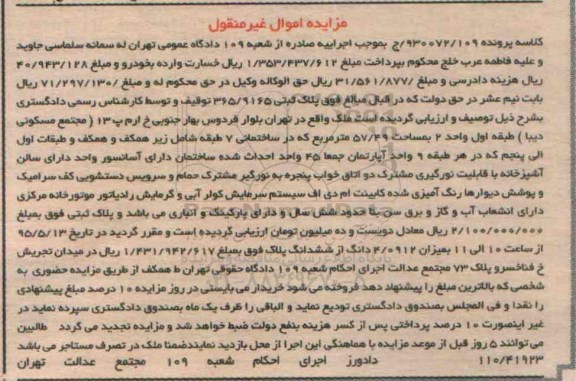 مزایده اموال غیرمنقول
کلاسه پرونده ۹۳۰۰۷۲/۱۰۹/ج بموجب اجراییه صادره از شعبه ۱۰۹ دادگاه عمومی تهران له سمانه سلماسی جاوید
و علیه فاطمه عرب خلج محکوم بپرداخت مبلغ ۱/۳۵۳/۴۳۷/۶۱۲ ریال خسارت وارده بخودرو و مبلغ ۴۰/۹۴۳/۱۲۸
ریال هزینه دادرسی و مبلغ ۳۱/۵۶۱/۸۷۷/ ریال حق الوکاله وکیل در حق محکوم له و مبلغ ۷۱/۲۹۷/۱۳۰/ ریال
بابت نیم عشر در حق دولت که در قبال مبالغ فوق پلاک ثبتی ۳۶۵/۹۱۶۵ توقیف و توسط کارشناس رسمی دادگستری
بشرح ذیل توصیف و ارزیابی گردیده است ملک واقع در تهران بلوار فردوس بهار جنوبی خ ارم پ ۱۳ ( مجتمع مسکونی
دیبا ) طبقه اول واحد ۲ بمساحت ۵۷/۴۹ مترمربع که در ساختمانی ۷ طبقه شامل زیر همکف و همکف و طبقات اول
الی پنجم که در هر طبقه ۹ واحد آپارتمان جمعا ۴۵ واحد احداث شده ساختمان دارای آسانسور واحد دارای سالن
آشپزخانه با قابلیت نورگیری مشترک دو اتاق خواب پنجره به نورگیر مشترک حمام و سرویس دستشویی کف سرامیک
و پوشش دیوارها رنگ آمیزی شده کابینت ام دی اف سیستم سرمایش کولر آبی و گرمایش رادیاتور موتورخانه مرکزی
دارای انشعاب آب و گاز و برق سن بنا حدود شش سال و دارای پارکینگ و انباری می باشد و پلاک ثبتی فوق بمبلغ
۲/۱۰۰/۰۰۰/۰۰۰ ریال معادل دویست و ده میلیون تومان ارزیابی گردیده است و مقرر گردید در تاریخ ۹۵/۵/۱۳
از ساعت ۱۰ الی ۱۱ بمیزان ۴/۰۹۱۲ دانگ از ششدانگ پلاک فوق بمبلغ ۱/۴۳۱/۹۴۲/۶۱۷ ریال در میدان تجریش
خ فناخسرو پلاک ۷۳ مجتمع عدالت اجرای احکام شعبه ۱۰۹ دادگاه حقوقی تهران ط همکف از طریق مزایده حضوری به
شخصی که بالاترین مبلغ را پیشنهاد دهد فروخته می شود خریدار می بایستی در روز مزایده ۱۰ درصد مبلغ پیشنهادی
را نقدا و فی المجلس بصندوق دادگستری تودیع نماید و الباقی را ظرف یک ماه بصندوق دادگستری سپرده نماید در
غیر اینصورت ۱۰ درصد پرداختی پس از کسر هزینه بنفع دولت ضبط خواهد شد و مزایده تجدید می گردد طالبین
می توانند ۵ روز قبل از موعد مزایده با هماهنگی این اجرا از محل بازدید نمایندضمنا ملک در تصرف مستاجر می باشد
۱۱۰/۴۱۹۲۳ دادورز اجرای احکام شعبه ۱۰۹ مجتمع عدالت تهران